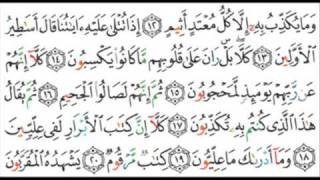 وَمَا يُكَذِّبُ بِهِۦٓ إِلَّا كُلُّ مُعْتَدٍ أَثِيمٍ ١٢ إِذَا تُتْلَىٰ عَلَيْهِ ءَايَٰتُنَا قَالَ أَسَٰطِيرُ
ٱلْأَوَّلِينَ ١٣ كَلَّا بَلْ رَانَ عَلَىٰ قُلُوبِهِم مَّا كَانُوا۟ يَكْسِبُونَ ١٤ كَلَّآ إِنَّهُمْ
عَن رَّبِّهِمْ يَوْمَئِذٍ لَّمَحْجُوبُونَ ١٥ ثُمَّ إِنَّهُمْ لَصَالُوا۟ ٱلْجَحِيمِ ١٦ ثُمَّ يُقَالُ
هَٰذَا ٱلَّذِى كُنتُم بِهِۦ تُكَذِّبُونَ ١٧ كَلَّآ إِنَّ كِتَٰبَ ٱلْأَبْرَارِ لَفِى عِلِّيِّينَ
١٨ وَمَآ أَدْرَىٰكَ مَا عِلِّيُّونَ ١٩ كِتَٰبٌ مَّرْقُومٌ ٢٠ يَشْهَدُهُ ٱلْمُقَرَّبُونَ